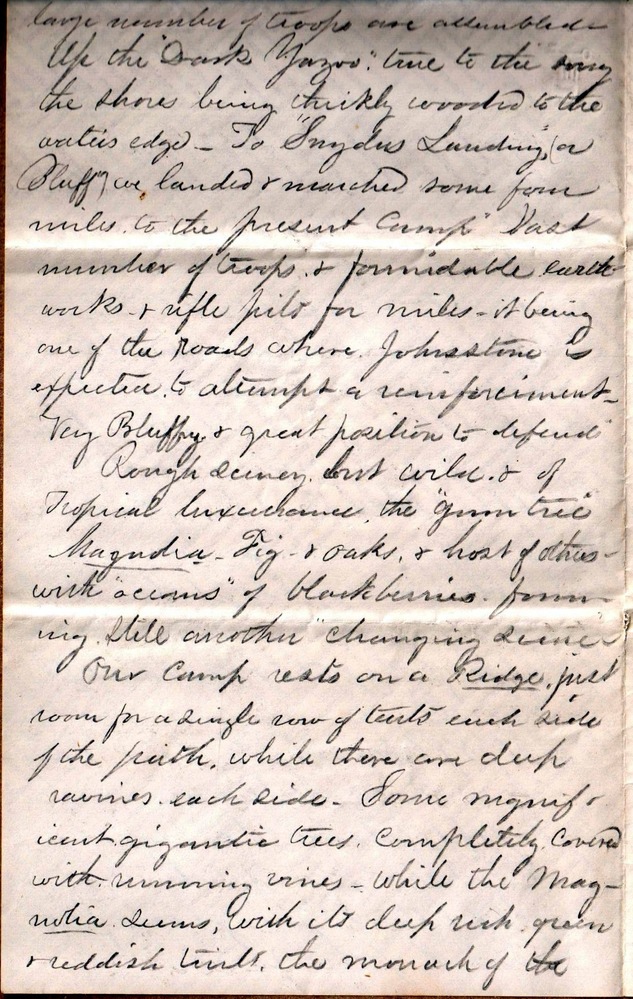 large number of troops are assembled-
Up the "Dark Yazoo". true to the song
the shores being thickly wooded to the
waters edge - To "Snyders Landing", (or
Bluff") we landed & marched some four
miles to the present Camp" Vast
number of troops. & formidable earth-
works. & rifle pits for miles - it being
one of the roads where Johnstone is
expected to attempt a reinforcement-
Very Bluffy & great position to defend
Rough scenery but wild. & of
Tropical luxuriance, the "gum tree"
Magnolia - Fig - & oaks, & host of others-
with "oceans" of blackberries form-
ing still another "changing scene"
Our Camp rests on a Ridge, just
room for a single row of tents each side
of the path, while there are deep
ravines each side - Some magnif-
icent gigantic trees. Completely Covered
with running vines - while the Mag-
nolia seems, with its deep rich green
& reddish tints, the monarch of the